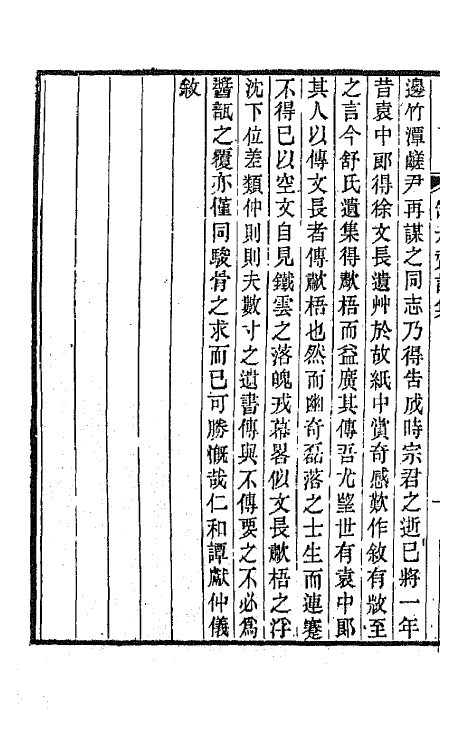 邊竹潭鹺尹再謀之同志乃得告成時宗君之逝已將一年
昔袁中郎得徐文長遺艸於故紙中賞奇感歎作敘有歘至
之言今舒氏遺集得歗梧而益廣其傳吾尤望世有袁中郎
其人以傳文長者傳歗梧也然而幽奇磊落之士生而連蹇
不得已以空文自見鐵雲之落魄戎幕畧似文長歗梧之浮
沈下位差類仲則則夫數寸之遺書傳與不傳要之不必爲
醬瓿之覆亦僅同駿骨之求而已可勝慨哉仁和譚獻仲儀
敘